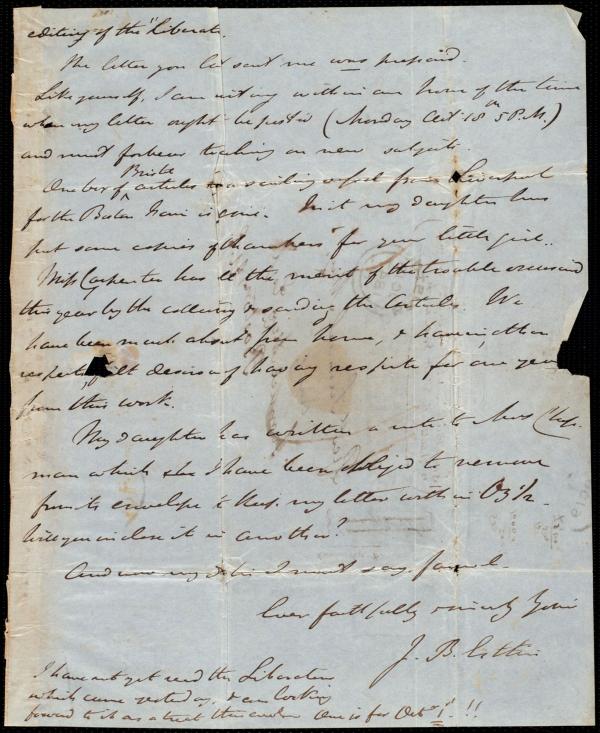 editing of the "Liberator.
The letter you last sent me was prepaid.
Like yourself, I am writing within an hour of the time
when my letter ought be posted (Monday Oct. 18th 5 P.M.)
and must forbear touching on new subjects.
One box of Bristol articles in a sailing vessel from Liverpool
for the Boston Fair is gone. In it my daughter has
put some copies of "Chambers" for your little girl.
Miss Carpenter has all the merit of the trouble occasioned
this year by the collecting & sending the Articles. We
have been much absent from home, & have in other
respects felt desirous of having respite for one year
from this work.
My daughter has written a note to Mrs Chap-
man which she & I have been obliged to remove
from its envelope to keep my letter within Oz ½.
Will you inclose it in another?
And now my I must say farewell.
Ever faithfully & sincerely Yours
J. B. Estlin
I have not yet read the Liberator
which came yesterday, & am looking
forward to it as a treat this One is for Oct 1st!!